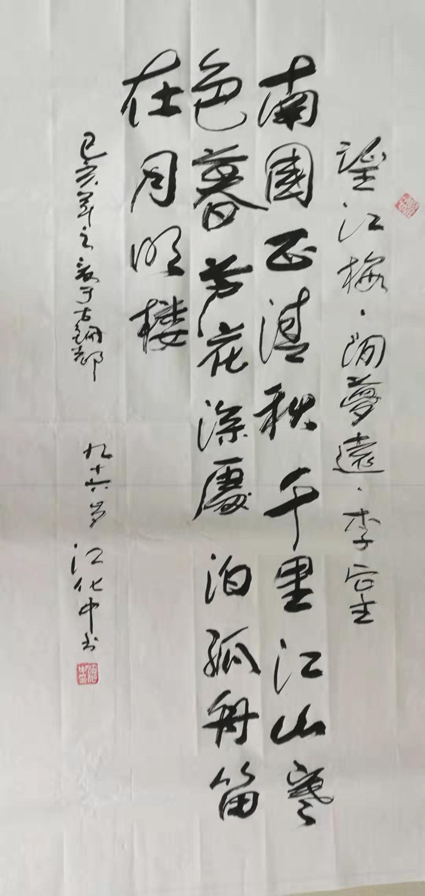 望江梅·闲夢遠·李后主
南國正清秋千里江山寒
色暮芦花深處泊孤舟笛
在月明楼
己亥年之寂于古銅都
九十六岁江化中书